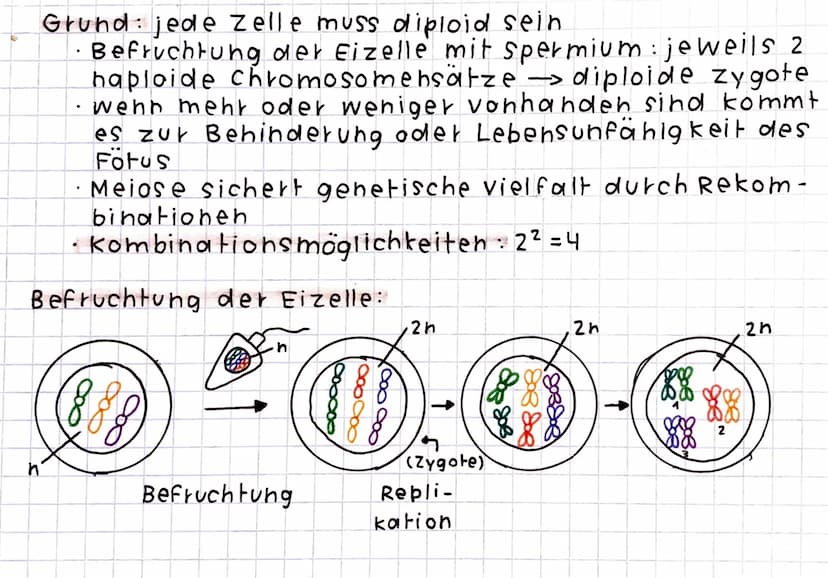 Grund: jede Zelle muss diploid sein
· Befruchtung der Eizelle mit Spermium: jeweils 2
haploide Chromosomensätze → diploide Zygote
· wenn mehr oder weniger vorhanden sind kommt
es zur Behinderung oder Lebensunfähigkeit des
Fötus
· Meiose sichert genetische Vielfalt durch Rekom-
binationen
· Kombinationsmöglichkeiten: 2² = 4
Befruchtung der Eizelle:
n
n
2n
2n
2n
1
2
3
(Zygote)
Befruchtung
Repli-
kation